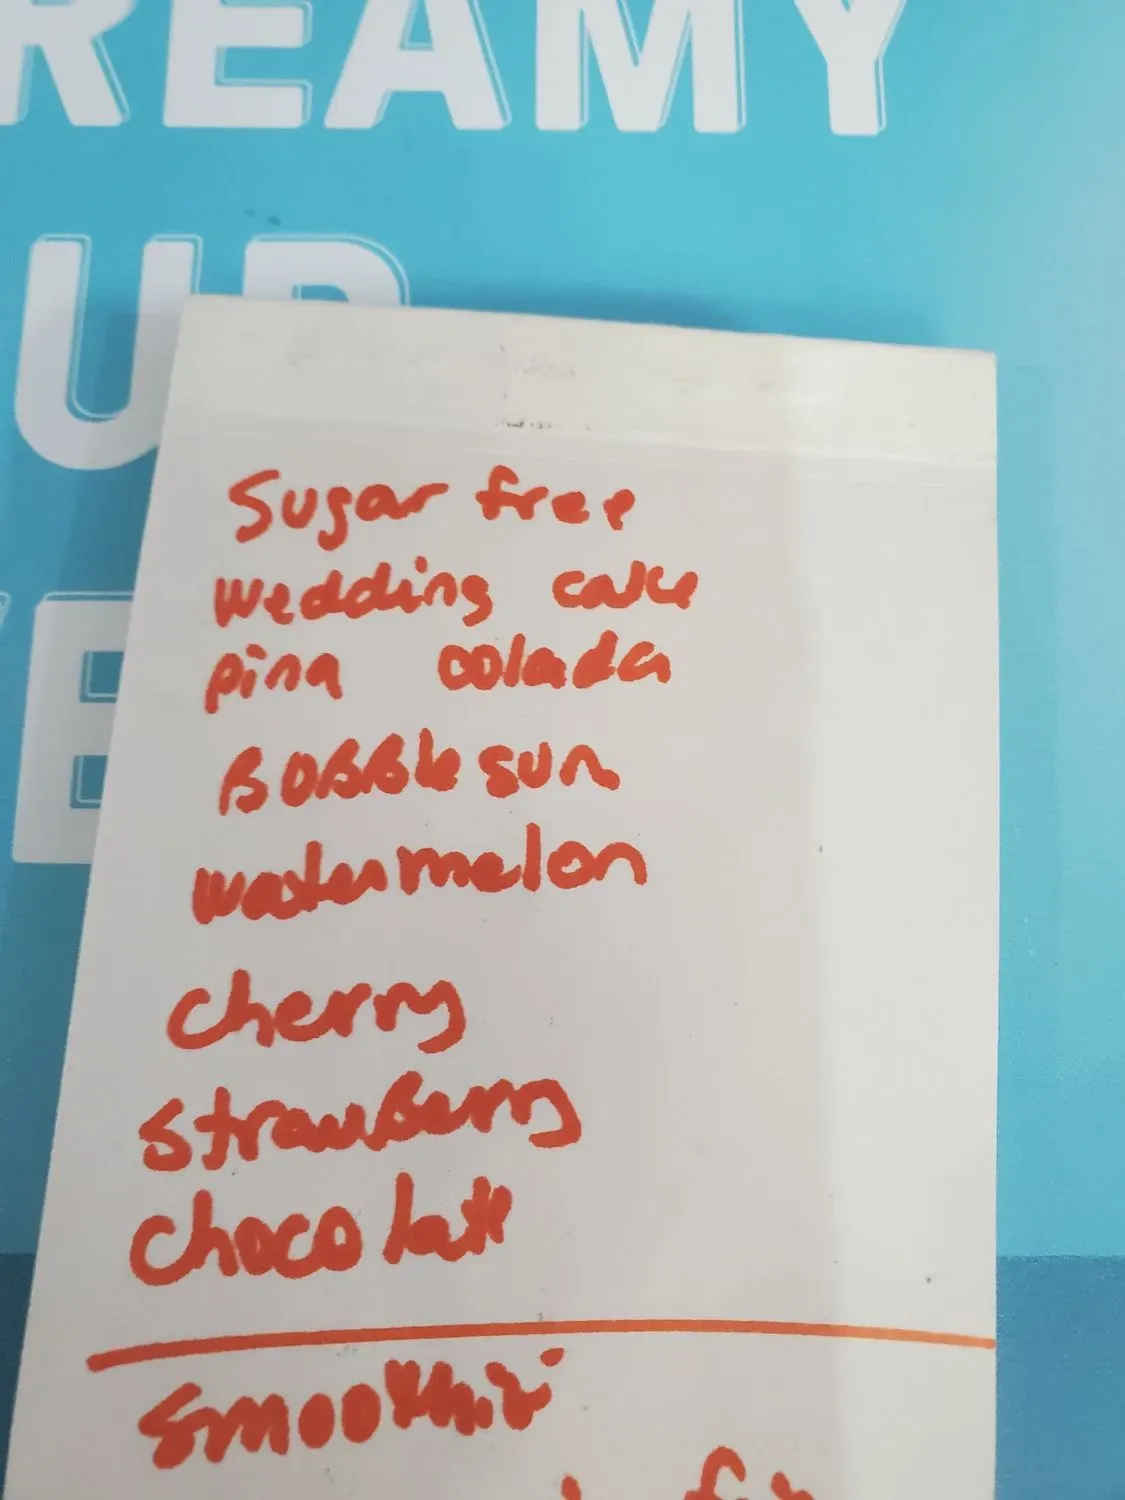 REAMY
UP
E
Sugar free
wedding cake
pina colada
BOBBle gum
watermelon
cherry
strawBerry
chocolate
smoothie